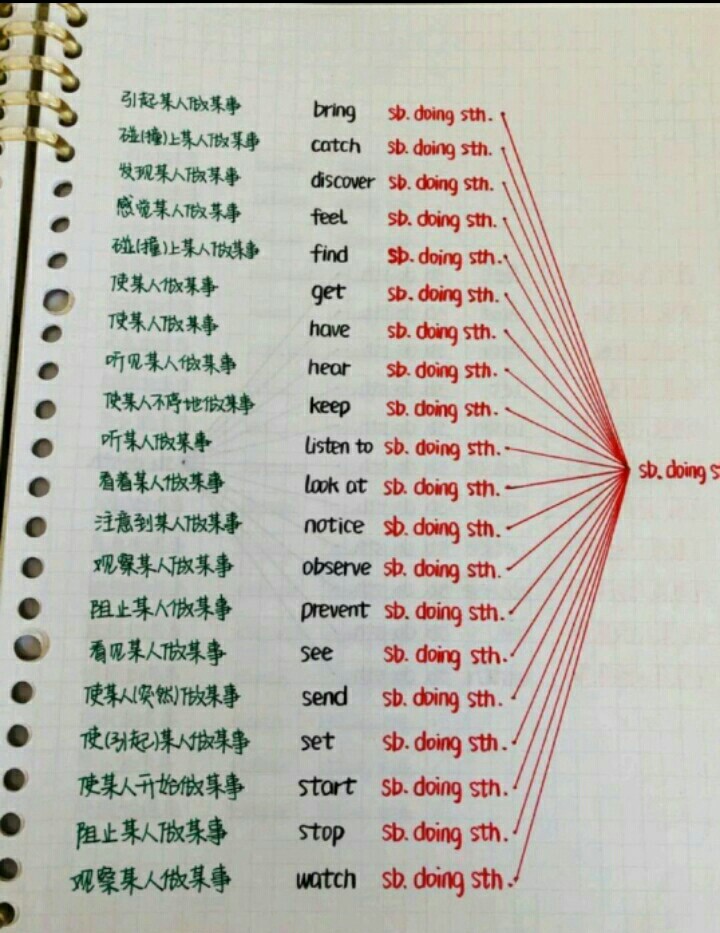 引起某人做某事 bring sb. doing sth.
碰(撞)上某人做某事 catch sb. doing sth.
发现某人做某事 discover sb. doing sth.
感觉某人做某事 feel sb. doing sth.
碰(撞)上某人做某事 find sb. doing sth.
使某人做某事 get sb. doing sth.
使某人做某事 have sb. doing sth.
听见某人做某事 hear sb. doing sth.
使某人不停地做某事 keep sb. doing sth.
听某人做某事 listen to sb. doing sth.
sb. doing s
看着某人做某事 look at sb. doing sth.
注意到某人做某事 notice sb. doing sth.
观察某人做某事 observe sb. doing sth.
阻止某人做某事 prevent sb. doing sth.
看见某人做某事 see sb. doing sth.
使某人(突然)做某事 send sb. doing sth.
使(引起)某人做某事 set sb. doing sth.
使某人开始做某事 start sb. doing sth.
阻止某人做某事 stop sb. doing sth.
观察某人做某事 watch sb. doing sth.